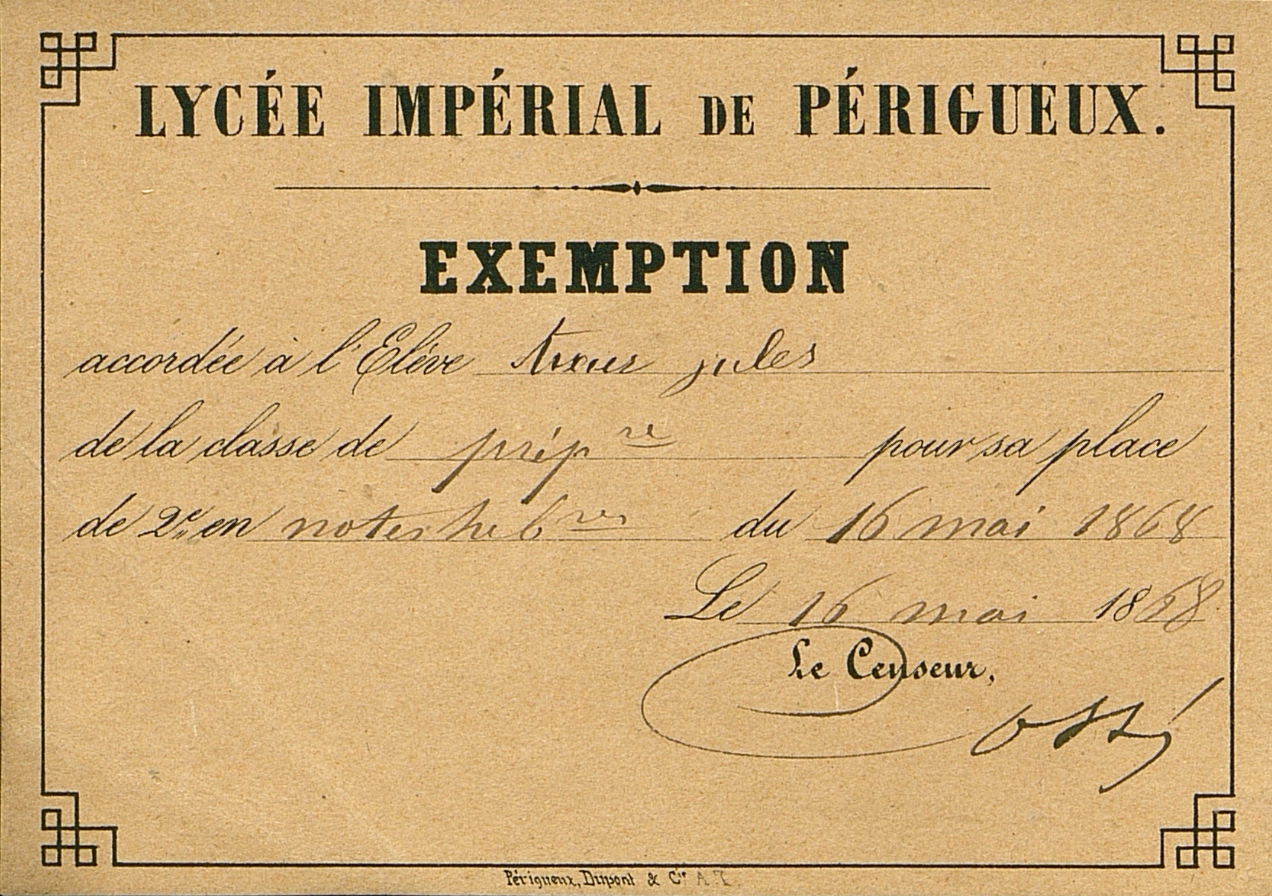 LYCÉE IMPÉRIAL DE PÉRIGUEUX.
EXEMPTION
accordée à l'Elève jules
de la classe de prép re pour sa place
de 2e en notes heb res du 16 mai 1868
Le 16 mai 1868
Le Censeur,
Périgueux, Dupont & Cie